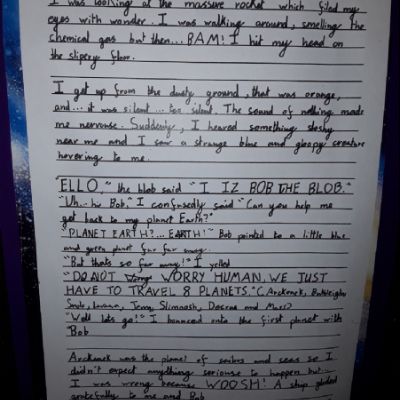 I was looking at the massive rocket which filed my
eyes with wonder. I was walking around, smelling the
chemical gas but then... BAM! I hit my head on
the slipery floor.
I got up from the dusty, ground, that was orange,
and... it was silent... too silent. The sound of nothing made
me nervouse. Suddenly, I heared something sloshy
near me and I saw a strange blue and gloopy creature
hovering to me.
ELLO," the blob said "I IZ BOB THE BLOB."
"Uh.. hi Bob," I confusedly said "Can you help me
get back to my planet Earth?"
"PLANET EARTH?... EARTH!" Bob pointed to a little blue
and green planet far far away.
"But thats so far away!" I yelled
"DO NOT WORRY HUMAN. WE JUST
HAVE TO TRAVEL 8 PLANETS." (Arckonek,
and
"Well lets go!" I bounced onto the first planet with
Bob
Arckonek was the planet of sailors and seas so I
didn't expect anything seriouse to happen but...
I was wrong because WOOSH! A ship glided
gratefully to me and Bob